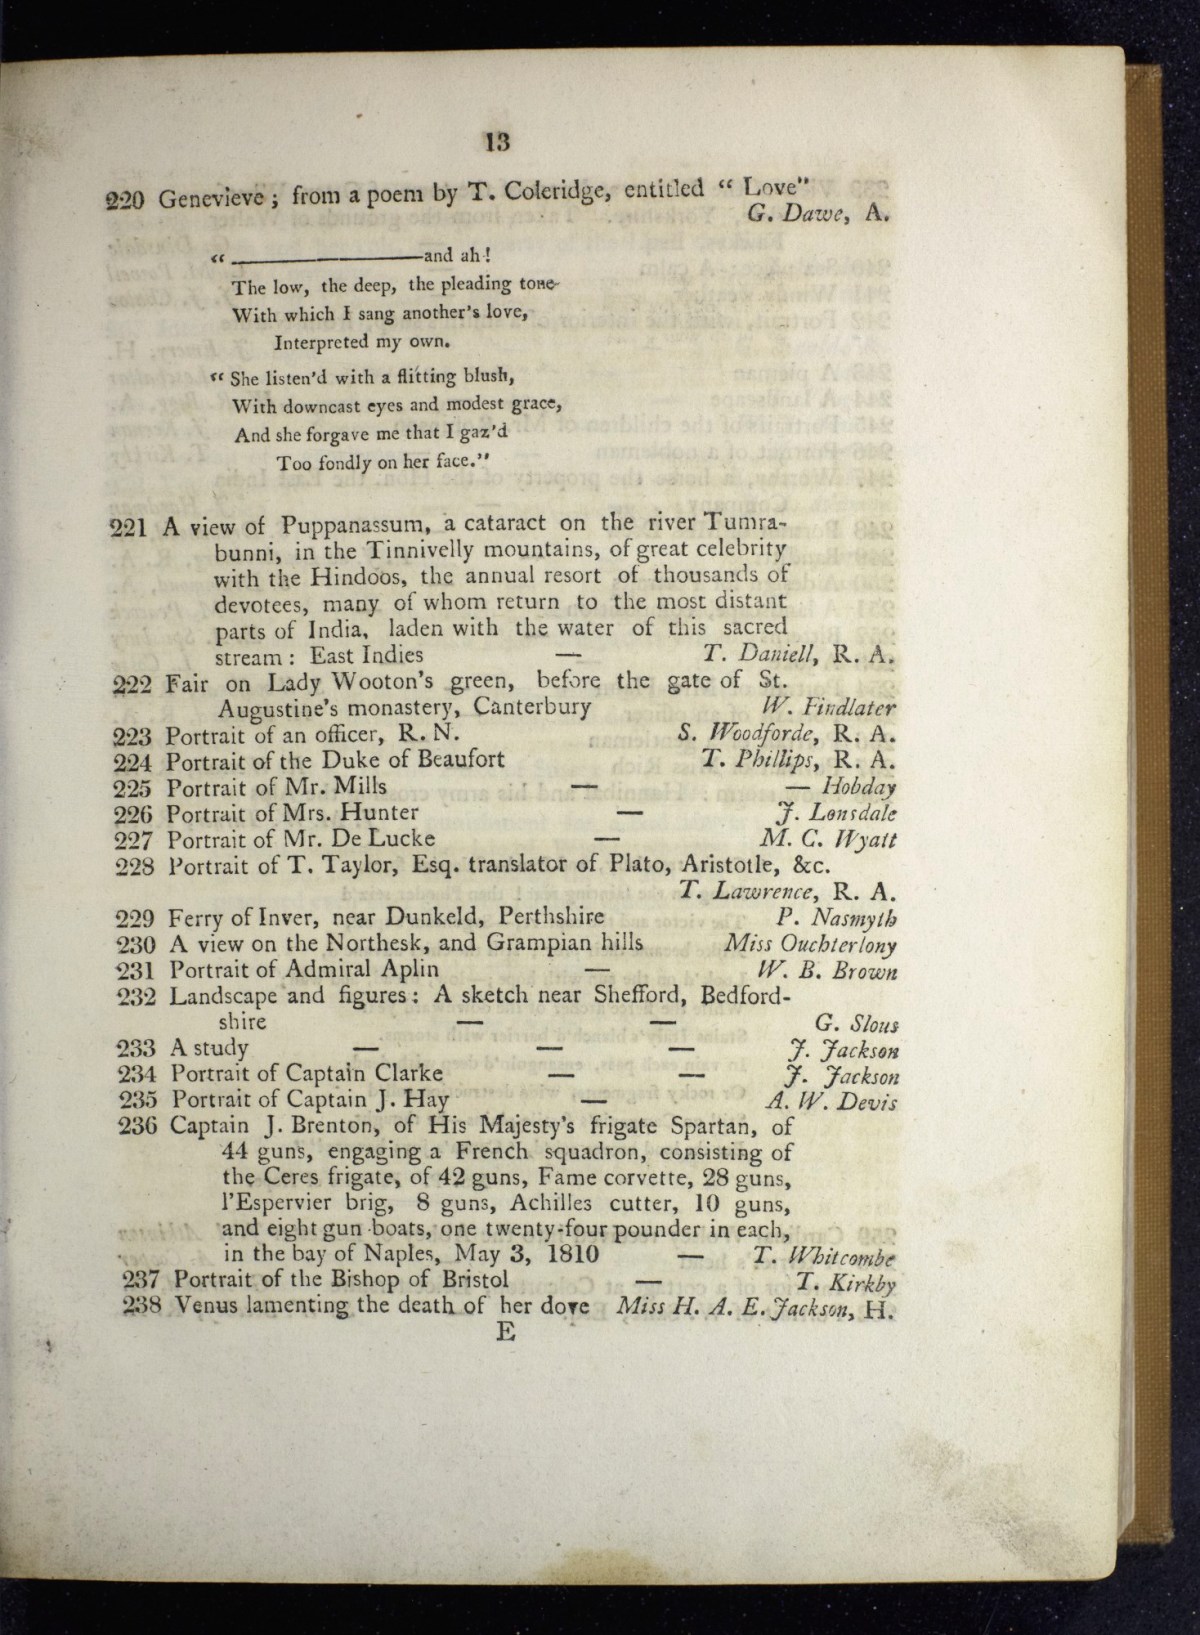 13
220 Genevieve; from a poem by T. Coleridge, entitled “ Love”
G. Dawe, A.
“ ——————and ah!
The low, the deep, the pleading tone
With which I sang another's love,
Interpreted my own.
“ She listen'd with a flitting blush,
With downcast eyes and modest grace,
And she forgave me that I gaz'd
Too fondly on her face.”
221 A view of Puppanassum, a cataract on the river Tumra-
bunni, in the Tinnivelly mountains, of great celebrity
with the Hindoos, the annual resort of thousands of
devotees, many of whom return to the most distant
parts of India, laden with the water of this sacred
stream: East Indies — T. Daniell, R. A.
222 Fair on Lady Wooton's green, before the gate of St.
Augustine's monastery, Canterbury W. Findlater
223 Portrait of an officer, R. N. S. Woodforde, R. A.
224 Portrait of the Duke of Beaufort T. Phillips, R. A.
225 Portrait of Mr. Mills — — Hobday
226 Portrait of Mrs. Hunter — J. Lonsdale
227 Portrait of Mr. De Lucke — M. C. Wyatt
228 Portrait of T. Taylor, Esq. translator of Plato, Aristotle, &c.
T. Lawrence, R. A.
229 Ferry of Inver, near Dunkeld, Perthshire P. Nasmyth
230 A view on the Northesk, and Grampian hills Miss Ouchterlony
231 Portrait of Admiral Aplin — W. B. Brown
232 Landscape and figures: A sketch near Shefford, Bedford-
shire — — G. Slous
233 A study — — — J. Jackson
234 Portrait of Captain Clarke — — J. Jackson
235 Portrait of Captain J. Hay — A. W. Devis
236 Captain J. Brenton, of His Majesty's frigate Spartan, of
44 guns, engaging a French squadron, consisting of
the Ceres frigate, of 42 guns, Fame corvette, 28 guns,
l'Espervier brig, 8 guns, Achilles cutter, 10 guns,
and eight gun boats, one twenty-four pounder in each,
in the bay of Naples, May 3, 1810 — T. Whitcombe
237 Portrait of the Bishop of Bristol — T. Kirkby
238 Venus lamenting the death of her dove Miss H. A. E. Jackson, H.
E